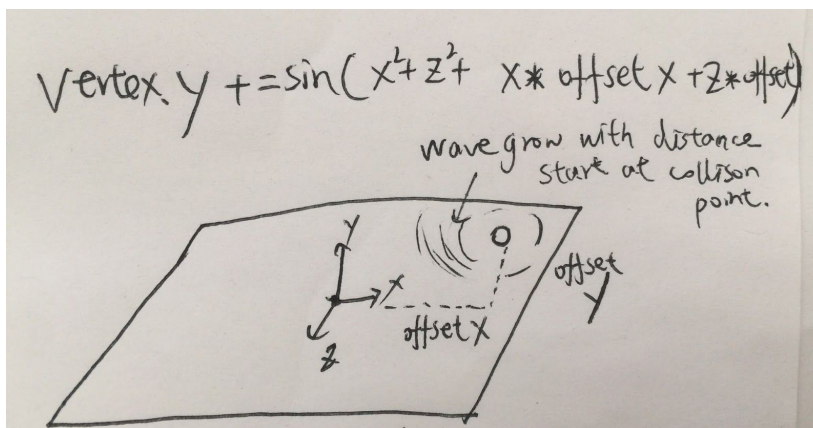 Vertex.y += sin(x²+z²+ x* offsetX +z*offset)
wave grow with distance
start at collison
point.
Y
X
Z
offset X
offset
Y